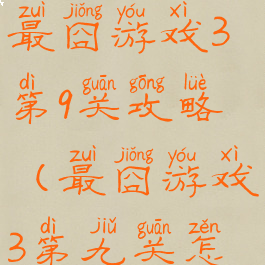 zuì jiǒng yóu xì
最囧游戏3
dì guān gōng lüè
第9关攻略
zuì jiǒng yóu xì
(最囧游戏
dì jiǔ guān zěn
3第九关怎